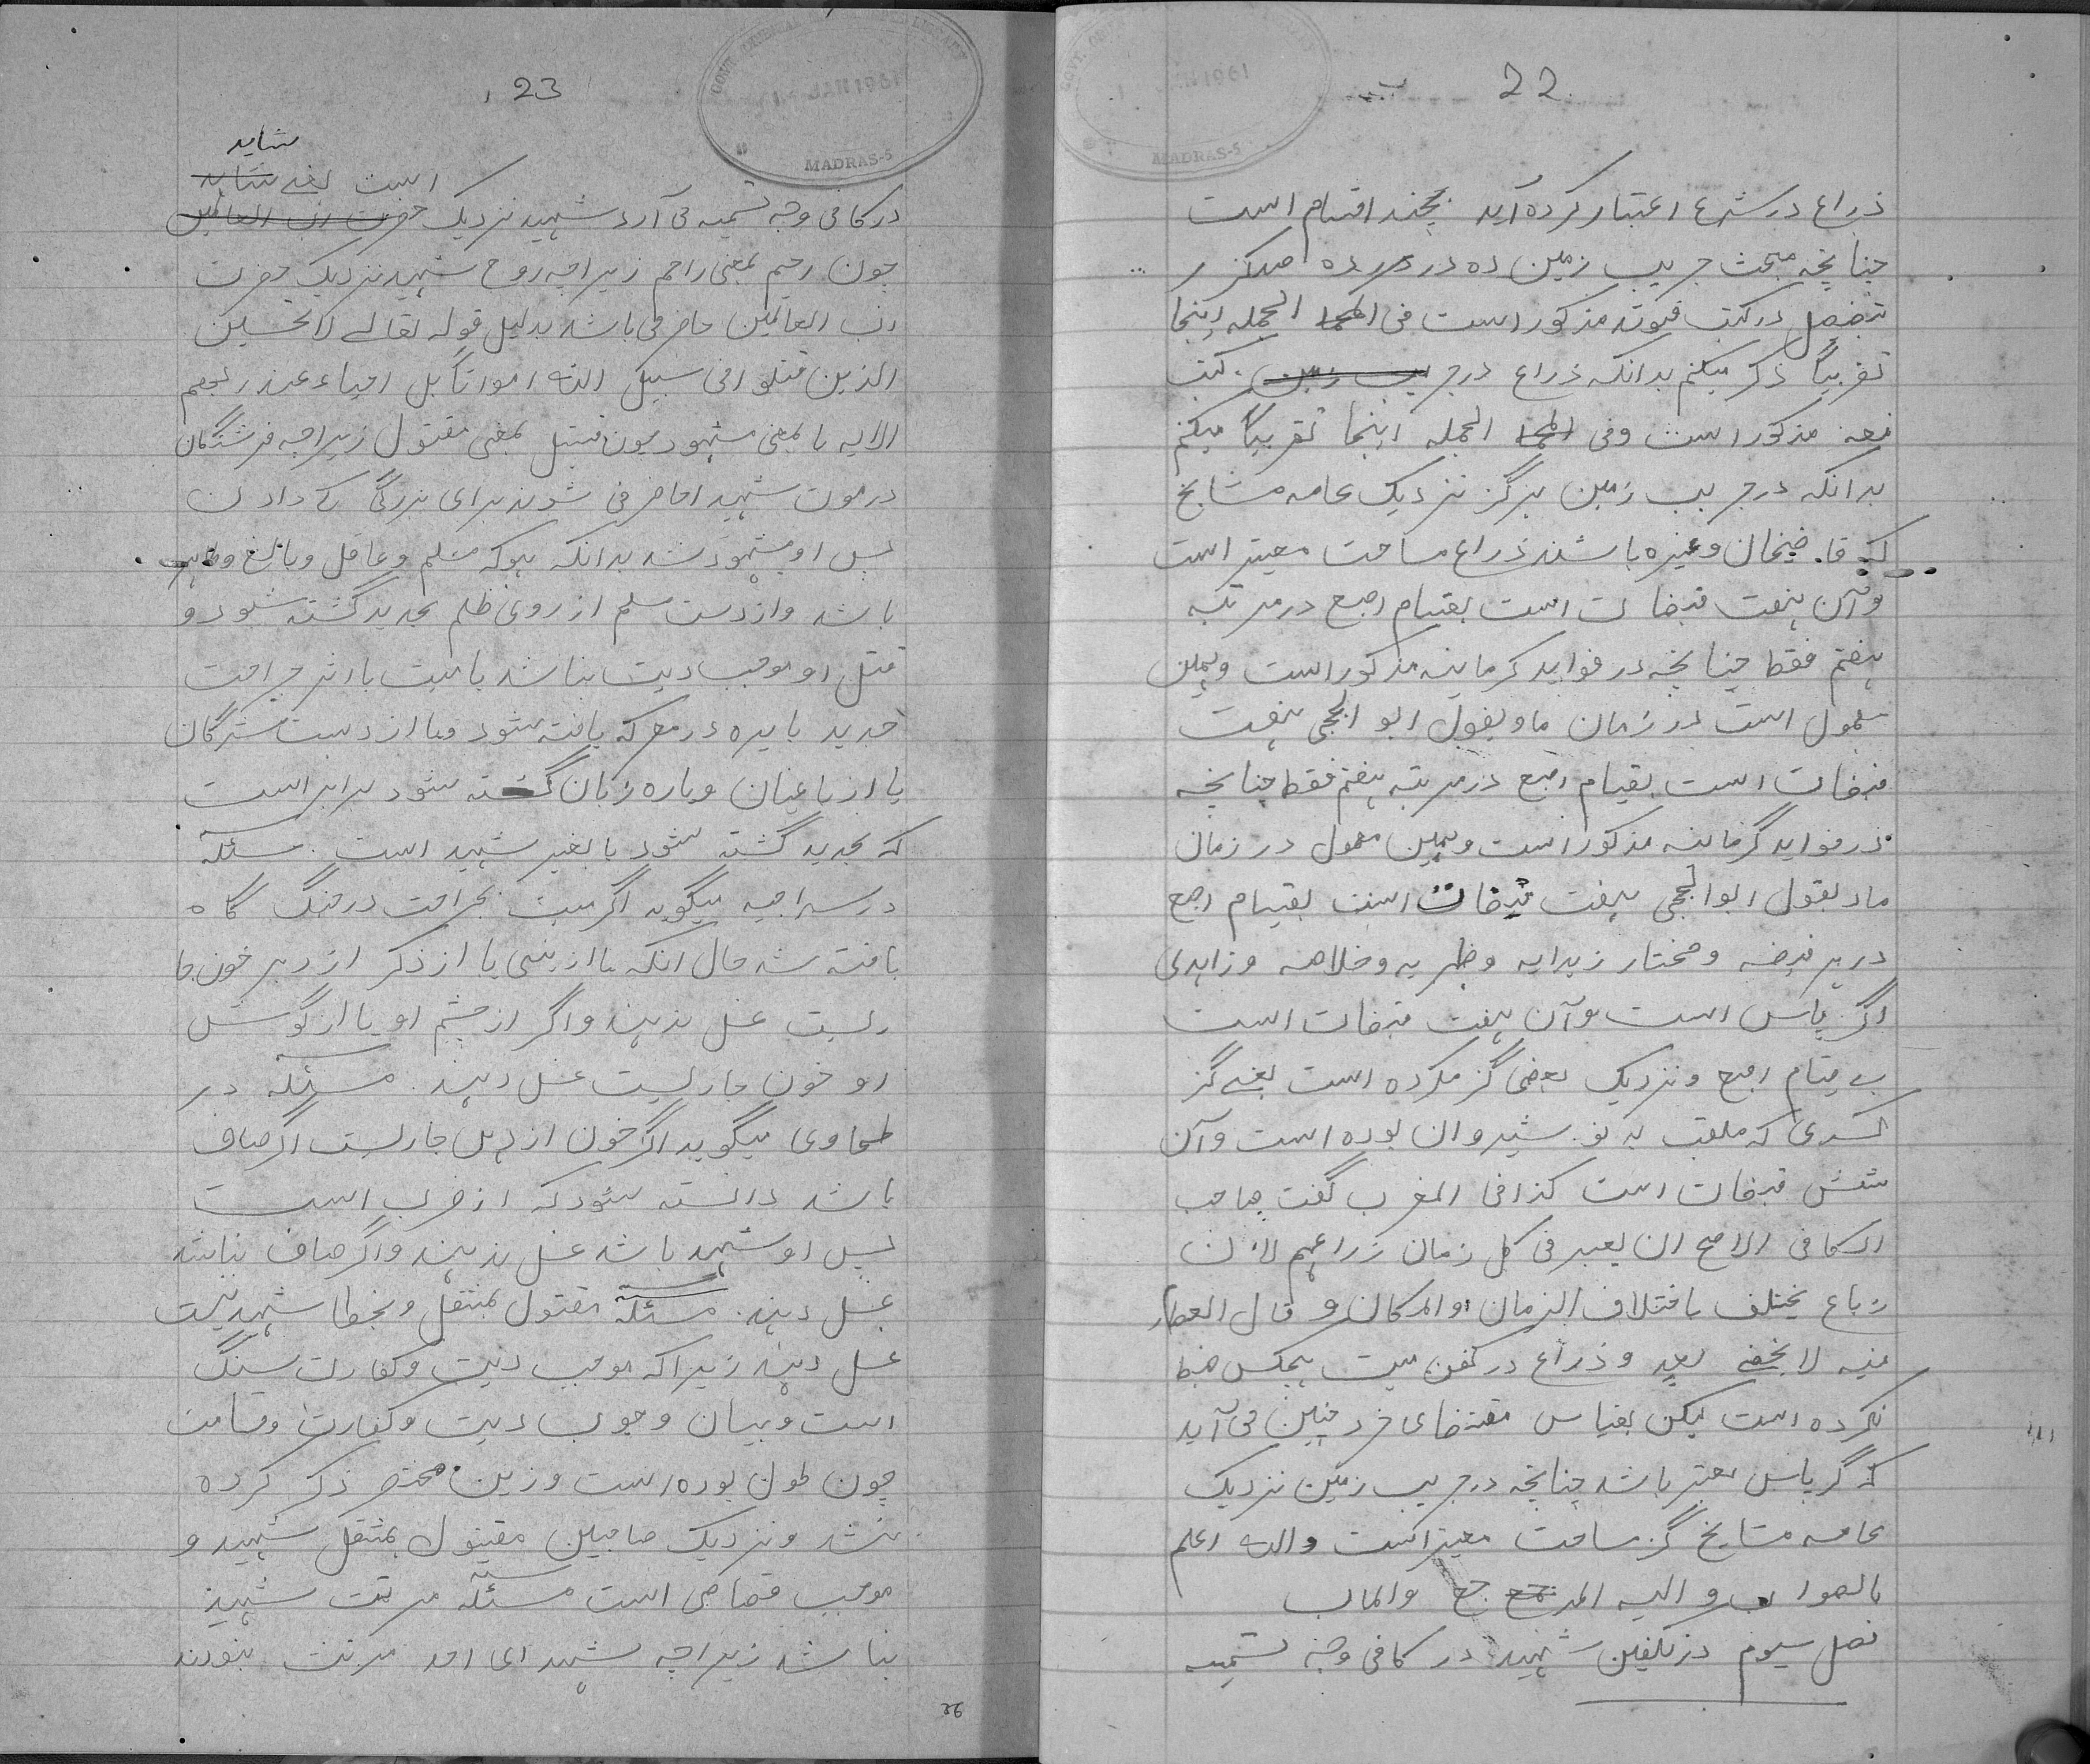 22
ذراع در شرع اعتبار کرده آید بچند اقسام است
چنانچه مبحث جریب زمین ده در ده
تفصیل در کتب مذکور است فی الجمله اینجا
تقریباً ذکر میکنم بدانکه ذراع در کتب
فقه مذکور است وفی الجمله اینجا تقریباً میکنم
بدانکه در جریب زمین بزگز نزدیک عامه مشایخ
که قا. ضیخان وغیره باشند ذراع مساحت معتبر است
وآن هفت قبضات است بقیام اصبع در مرتبه
هفتم فقط چنانچه در فواید کرمانیه مذکور است وهمین
معمول است در زمان ما وبقول ابو هفت
قبضات است بقیام اصبع در مرتبه هفتم فقط چنانچه
در فواید کرمانیه مذکور است وهمین معمول در زمان
ما وبقول ابو هفت قبضات است بقیام اصبع
در هر قبضه ومختار وخلاصه وزاهدی
گز پاس است وآن هفت قبضات است
بے قیام اصبع ونزدیک بعضی گز مکرده است یعنے گز
کسری که ملقب به نو. شیروان بوده است وآن
شش قبضات است کذا فی المغرب گفت صاحب
الکافی الاصح ان یعبر فی کل زمان زراعهم لان
یختلف باختلاف الزمان والمکان و قال العطار
فیه لا یخفے بعد و ذراع در کفن میت هیچکس ضبط
نکرده است لیکن بقیاس مقتضای خرد چنین می آید
که گز پاس معتبر باشد چنانچه در جریب زمین نزدیک
عامه مشایخ گز مساحت معتبر است والله اعلم
بالصواب و الیه المرجع والماب
فصل سیوم در تکفین شهید در کافی وجه تسمیه
23
شاید
است یعنے شاید
در کافی وجه تسمیه می آرد شهید نزدیک حضرت رب العالمین
چون رحیم بمعنی راحم زیراچه روح شهید نزدیک حضرت
رب العالمین حاضر می باشد بدلیل قوله تعالے لا تحسبن
الذین قتلوا فی سبیل الله امواتاً بل احیاء عند ربهم
الایه یا بمعنی مشهود چون قتیل بمعنی مقتول زیراچه فرشتگان
در موت شهید احاضر می شوند برای بزرگی دادن
پس او مشهود شد بدانکه هرکه مسلم وعاقل وبالغ وطاهر
باشد واز دست مسلم از روی ظلم بحدید کشته شود و
قتل او موجب دیت نباشد یا میت با اثر جراحت
حدید یا یره در معرکه یافته شود ویا از دست مشرکان
یا از باغیان وباره زنان کشته شود برابر است
که بحدید کشته شود یا بغیر شهید است. مسئله
در سراجیه میگوید اگر میت بجراحت در جنگ گاه
یافته شد حال انکه یا از بینی یا از ذکر از دبر خون جا
ریست غسل ندهند واگر از چشم او یا از گوش
او خون جاریست غسل دهند. مسئله در
طحاوی میگوید اگر خون از دهن جاریست اگر صاف
باشد دانسته شود که از ضرب است
پس او شهید باشد غسل ندهند واگر صاف نباشد
غسل دهند. مسئله مقتول بمثقل وبخطا شهید نیست
غسل دهند زیراکه موجب دیت وکفارت سنگ
است وبیان وجوب دیت وکفارت وقسامت
چون طول بوده است وزین مختصر ذکر کرده
نشد ونزدیک صاحبین مقتول بمثقل شهید و
موجب قصاص است مسئله مرتث شهید
نباشد زیراچه شهدای احد مرتث نبودند
26
GOVT. ORIENTAL MANUSCRIPTS LIBRARY
JAN 1961
MADRAS-5